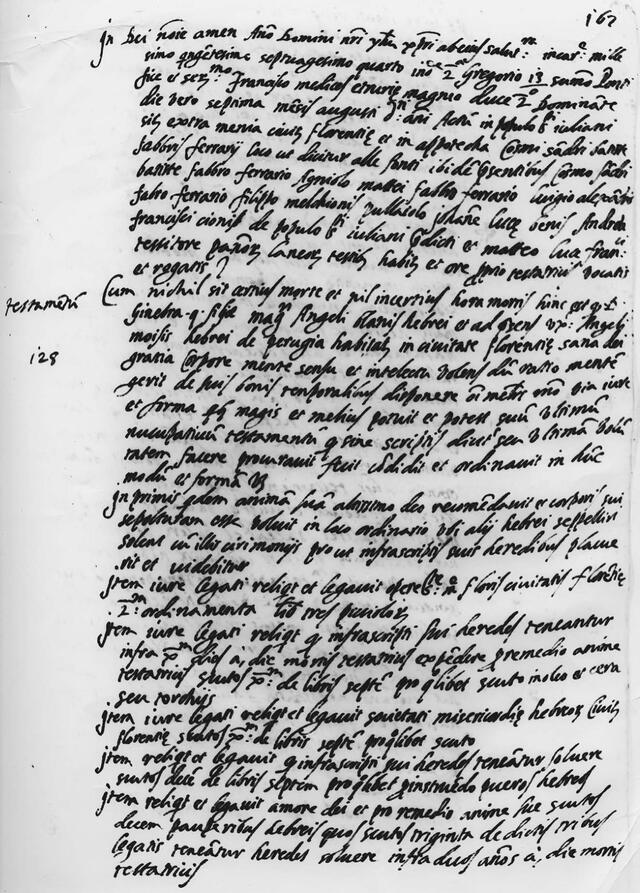 167
In Dei noīe amen Año Domini nri yhū xpri ab eius salutre incarne mille
simo qngētesimo septuagesimo quarto inde 2a Gregorio 13 sumō Ponti
fice et sermo Francisco medices etrurie magno duce 2o Dominate
die vero septima mēsis augusti dni ani Actū in populo sti iuliani
sitj extra menia civitj florentię et in appotecha Cosmi sādri sante
fabbrij ferrarij loco ut dicitur alle panti ibidē psentibus Cosmo sādri
batiste fabbro ferrario Agniolo mattei fabbro ferrario Luigio alexādri
fabro ferrario filippo melchionis
francisci cionis de populo sti iuliani pdicti et matteo lucę franci
tessitore panōrȝ lanorȝ testibȝ habitȝ et ore pprio testatricis vocatis
et rogatis
testamētū
128
Cum nichil sit certius morte et nil incertius hora mortis hinc est q. d.
Ginebra q. filia magri Angeli hebrei et ad prēns uxr Angeli
moisis hebrei de perugia habitatȝ in civitate florentię sana dei
gratia corpore mente sensu et intelectu volens dū ratio mentē
gerit de suis bonis temporalibus disponere oī meliri mo via iure
et forma qbȝ magis et melius potuit et potest suū ultimū
nucupativū testamentū q sine scriptis dicitr seu ultimā volū
tatem facere procuravit fecit cōdidit et ordinavit in hūc
modū et formā vȝ
In primis qdem animā suā altissimo deo recumēdavit et corporis sui
sepolturam esse voluit in loco ordinario ubi alij hebrei seppelliri
solent cū illis cirimonijs pro ut infrascriptis suis heredibus placue
rit et videbitur
Item iure legati reliqt et legavit opere ste me floris civitatis florentię
2m ordinamenta lib tres pivolorȝ
Item iure legati reliqt q infrascripti sui heredes teneantur
infra xm dies à, die mortis testatricis expēdere p remedio anime
testatricis scutos xm de libris septē pro qlibet scuto in oleo et cera
seu torchijs
Item iure legati reliqt et legavit societati misericordię hebreorȝ civitȝ
florentię scutos xm de libris septē pro qlibet scuto
Item reliqt et legavit q infrascripti sui heredes teneātur solvere
scutos decē de libris septem pro qlibet p instruēdo pueros hebreos
Item reliqt et legavit amore dei et pro remedio anime sue scutos
decem pauperibus hebreis quos scutos triginta de dictis tribus
legatis teneātur heredes solvere infra duos años à, die mortis
testatricis